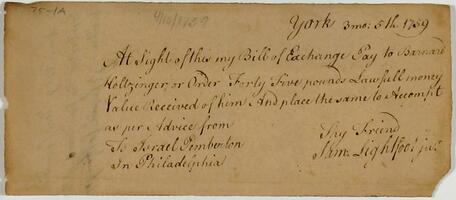 75-1A
4/10/1759
York 3mo: 5th 1759
At Sight of this my Bill of Exchange Pay to Barnard
Holtzinger, or Order Forty Five pounds Lawfull money
Value Received of him And place the same to Accompt
as per Advice from
Thy Friend
To Israel Pemberton
Saml Lightfoot junr
In Philadelphia